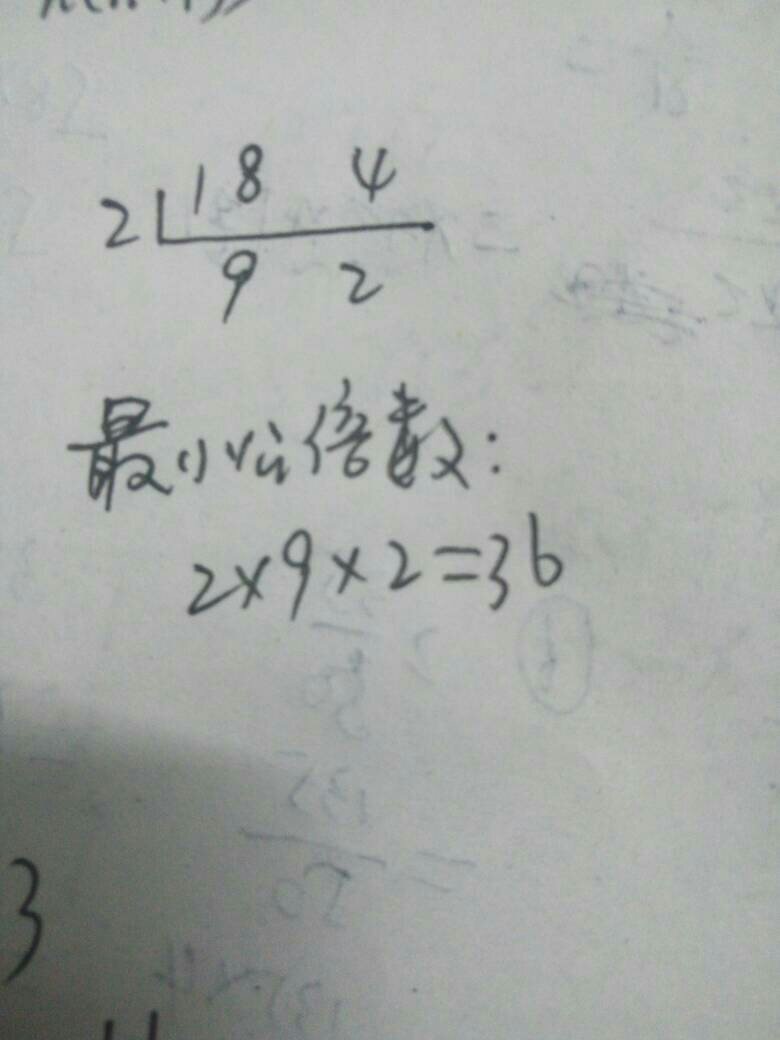 18 4
2
9 2
最小公倍数:
2×9×2=36
3